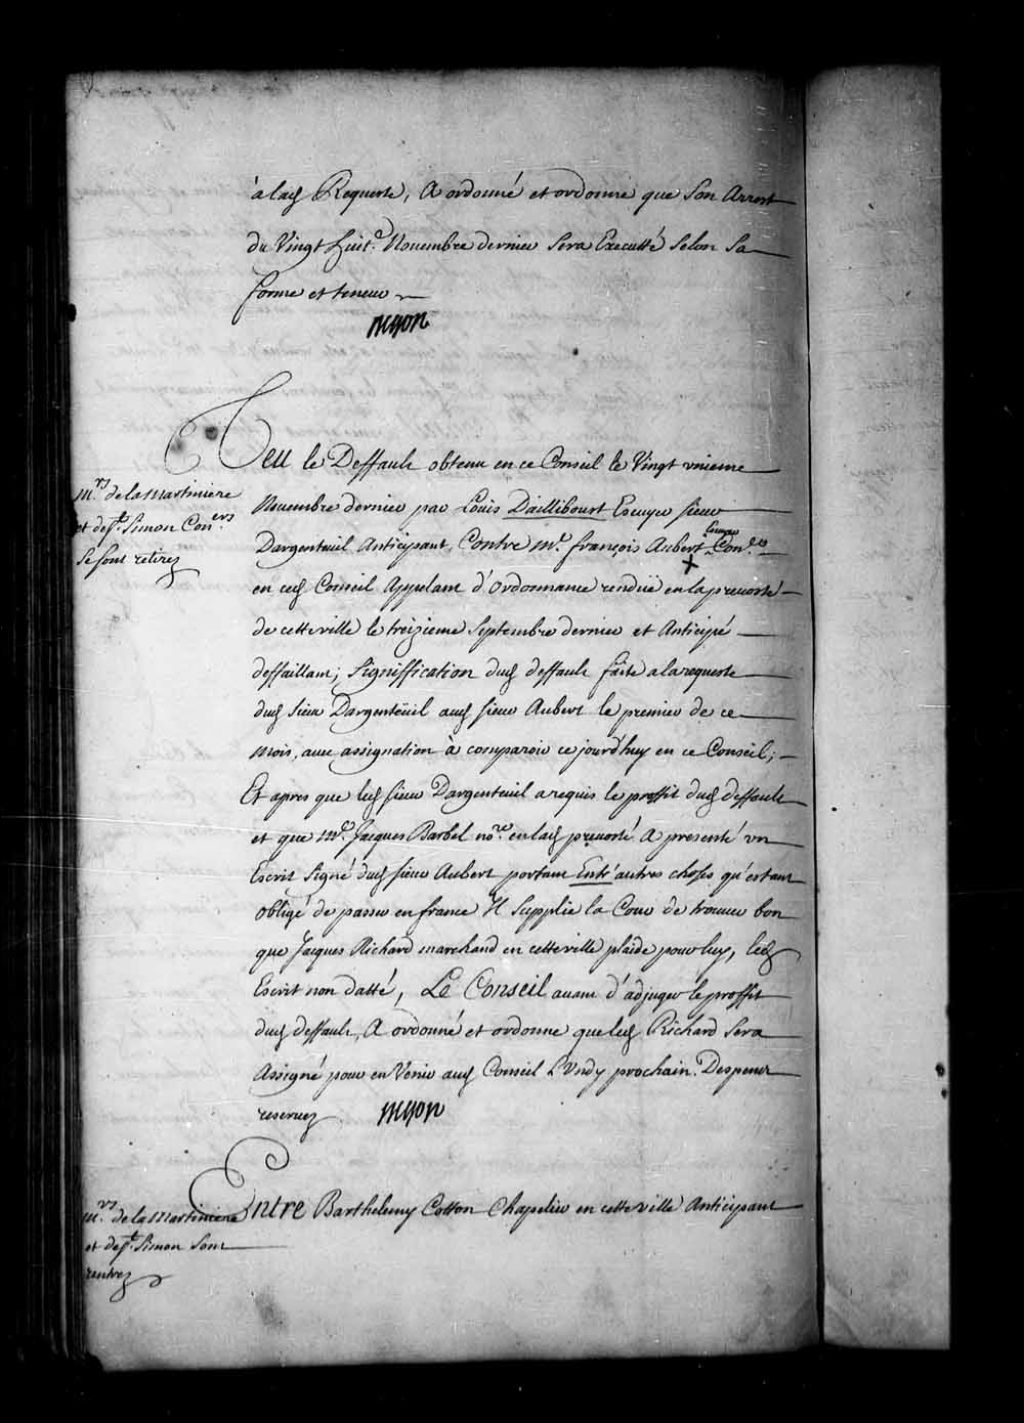 à lad Requeste, A ordonné et ordonne que Son Arrest
du Vingt huit.e Novembre dernier Sera Executté Selon Sa
forme et teneur
Begon
Veu le Deffault obtenu en ce Conseil le Vingt unieme
M.rs de la Martiniere
et de S.t Simon Con.ers
Se sont retirez
Novembre dernier par Louis Daillibourt Escuyer sieur
Dargenteuil Anticipant, Contre M.e françois Aubert Escuyer Con.er
en ced Conseil Appelant d'Ordonnance rendüe en la prevosté
de cette ville le treizieme Septembre dernier et Anticipé
deffaillant; Signiffication dud deffault faite a la requeste
dud Sieur Dargenteüil aud sieur Aubert le premier de ce
mois, avec assignation à comparoir ce jourd'huy en ce Conseil;
Et apres que led sieur Dargenteuil a requis le proffit dud deffault
et que M.e Jacques Barbel no.re en lad prevosté A presenté un
Escrit Signé dud sieur Aubert portant Entr'autres choses qu'estant
obligé de passer en france Il Supplie la Cour de trouver bon
que Jacques Richard marchand en cette ville plaide pour luy, led
Escrit non datté, Le Conseil avant d'adjuger le proffit
dud deffault, A ordonné et ordonne que led Richard Sera
Assigné pour en Venir aud Conseil Lundy prochain. Despens
reservez
Begon
M.rs de la Martiniere
et de S.t Simon Sont
rentrez
Entre Barthelemy Cotton Chapelier en cette ville Anticipant